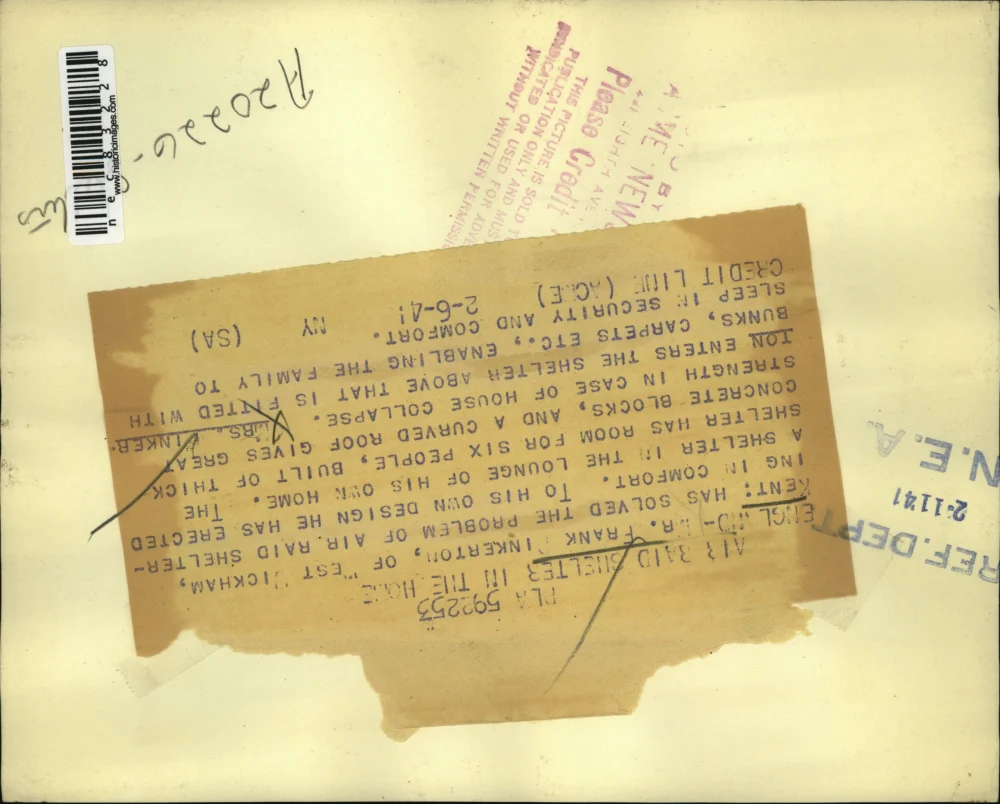 A20226.
www.historicimages.com
nec83228
BY
ACME NEW
Please Credit
THIS PICTURE IS SOLD
PUBLICATION ONLY AND MUS
SYNDICATED OR USED FOR ADVE
WITHOUT WRITTEN PERMISSI
N.E.A.
2-11-41
REF. DEPT
592253
AIR RAID SHELTER IN THE HOME
ENGLAND-MR. FRANK PINKERTON, OF WEST WICKHAM,
KENT: HAS SOLVED THE PROBLEM OF AIR RAID SHELTER-
ING IN COMFORT. TO HIS OWN DESIGN HE HAS ERECTED
A SHELTER IN THE LOUNGE OF HIS OWN HOME. THE
SHELTER HAS ROOM FOR SIX PEOPLE, BUILT OF THICK
CONCRETE BLOCKS, AND A CURVED ROOF GIVES GREAT
STRENGTH IN CASE OF HOUSE COLLAPSE. MRS. PINKER-
TON ENTERS THE SHELTER ABOVE THAT IS FITTED WITH
BUNKS, CARPETS ETC., ENABLING THE FAMILY TO
SLEEP IN SECURITY AND COMFORT.
CREDIT LINE (ACME) 2-6-41 NY (SA)